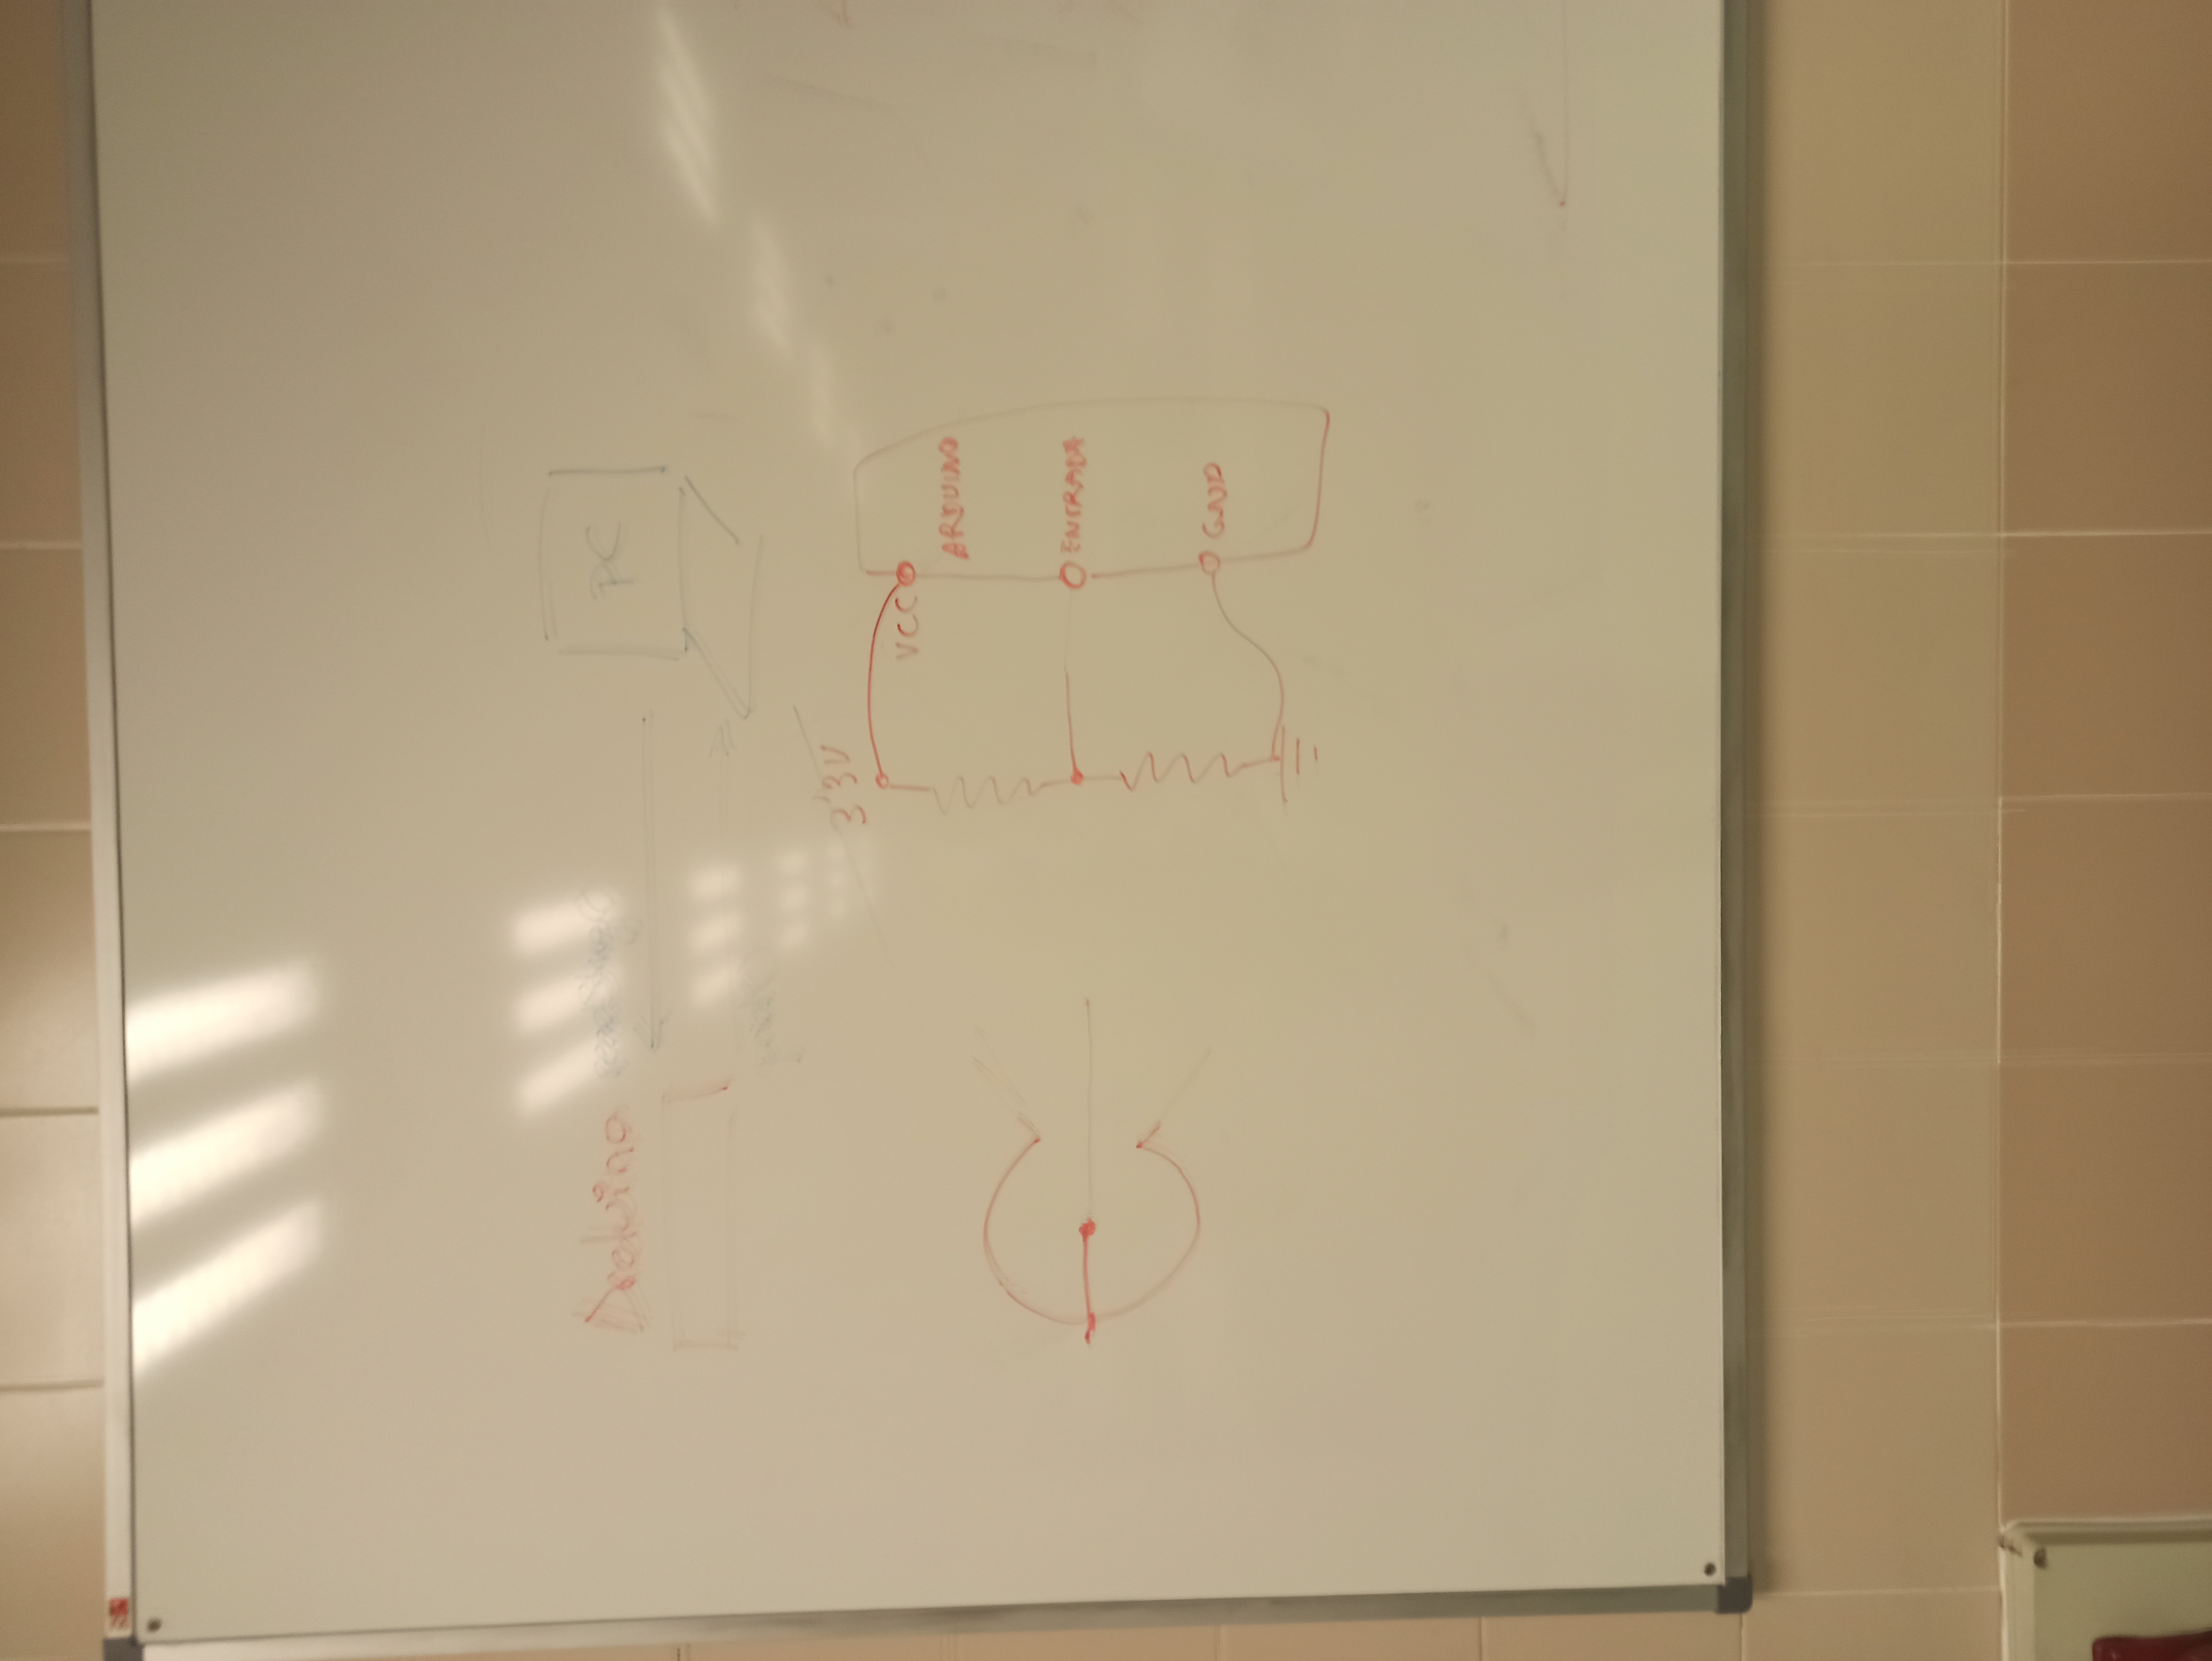 Arduino
PC
3'3V
VCC
ARDUINO
ENTRADA
GND